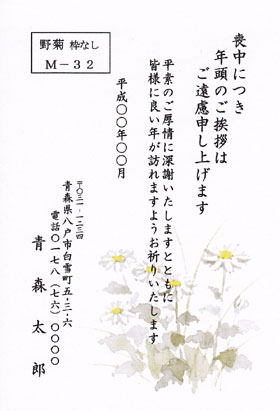 野菊 枠なし
M－32
喪中につき
年頭のご挨拶は
ご遠慮申し上げます
平素のご厚情に深謝いたしますとともに
皆様に良い年が訪れますようお祈りいたします
平成〇〇年〇〇月
〒〇三一-一二三四
青森県八戸市白雪町五-三-六
電話〇一七八(七六)〇〇〇〇
青森太郎